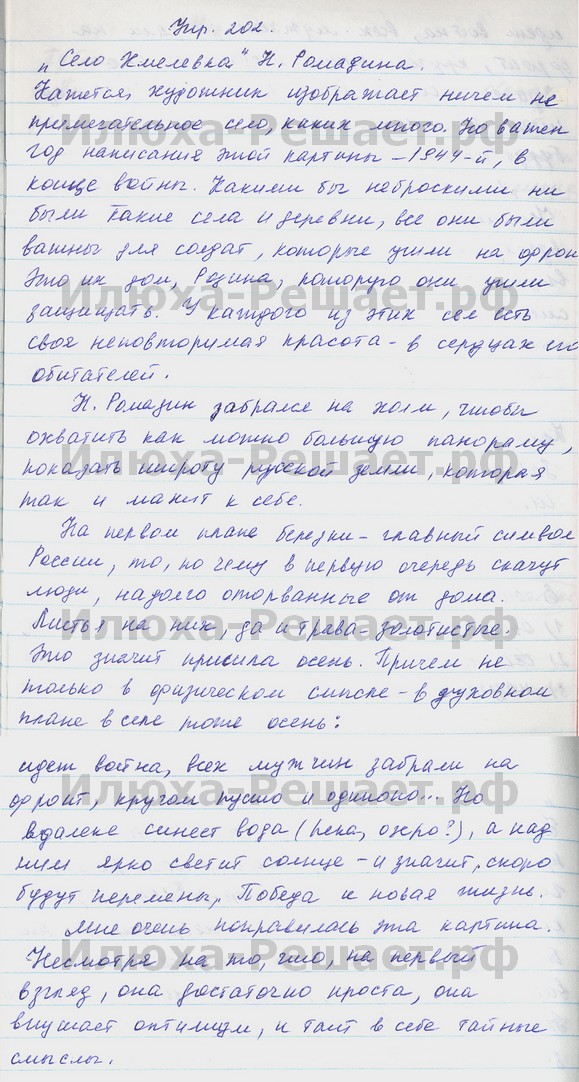 Упр. 202.
„Село Хмелевка" Н. Ромадина.
Кажется, художник изображает ничем не
примечательное село, каких много. Но важен
год написания этой картины – 1944-й, в
конце войны. Какими бы неброскими ни
были такие села и деревни, все они были
важны для солдат, которые ушли на фрон
Это их дом, Родина, которую они ушли
защищать. У каждого из этих сел есть
своя неповторимая красота – в сердцах его
обитателей.
Н. Ромадин забрался на холм, чтобы
охватить как можно большую панораму,
показать широту русской земли, которая
так и манит к себе.
На первом плане березки – главный символ
России, то, по чему в первую очередь скачут
люди, надолго оторванные от дома.
Листья на них, да и трава – золотистые.
Это значит пришла осень. Причем не
только в физическом смысле – в духовном
плане в селе тоже осень:
идет война, всех мужчин забрали на
фронт, кругом пусто и одиноко... Но
вдалеке синеет вода (река, озеро?), а над
ним ярко светит солнце – и значит, скоро
будут перемены, Победа и новая жизнь.
Мне очень понравилась эта картина.
Несмотря на то, что, на первый
взгляд, она достаточно проста, она
внушает оптимизм, и таит в себе тайные
смыслы.
Илюха-Решает.рф
Илюха-Решает.рф
Илюха-Решает.рф
Илюха-Решает.рф
Илюха-Решает.рф
Илюха-Решает.рф